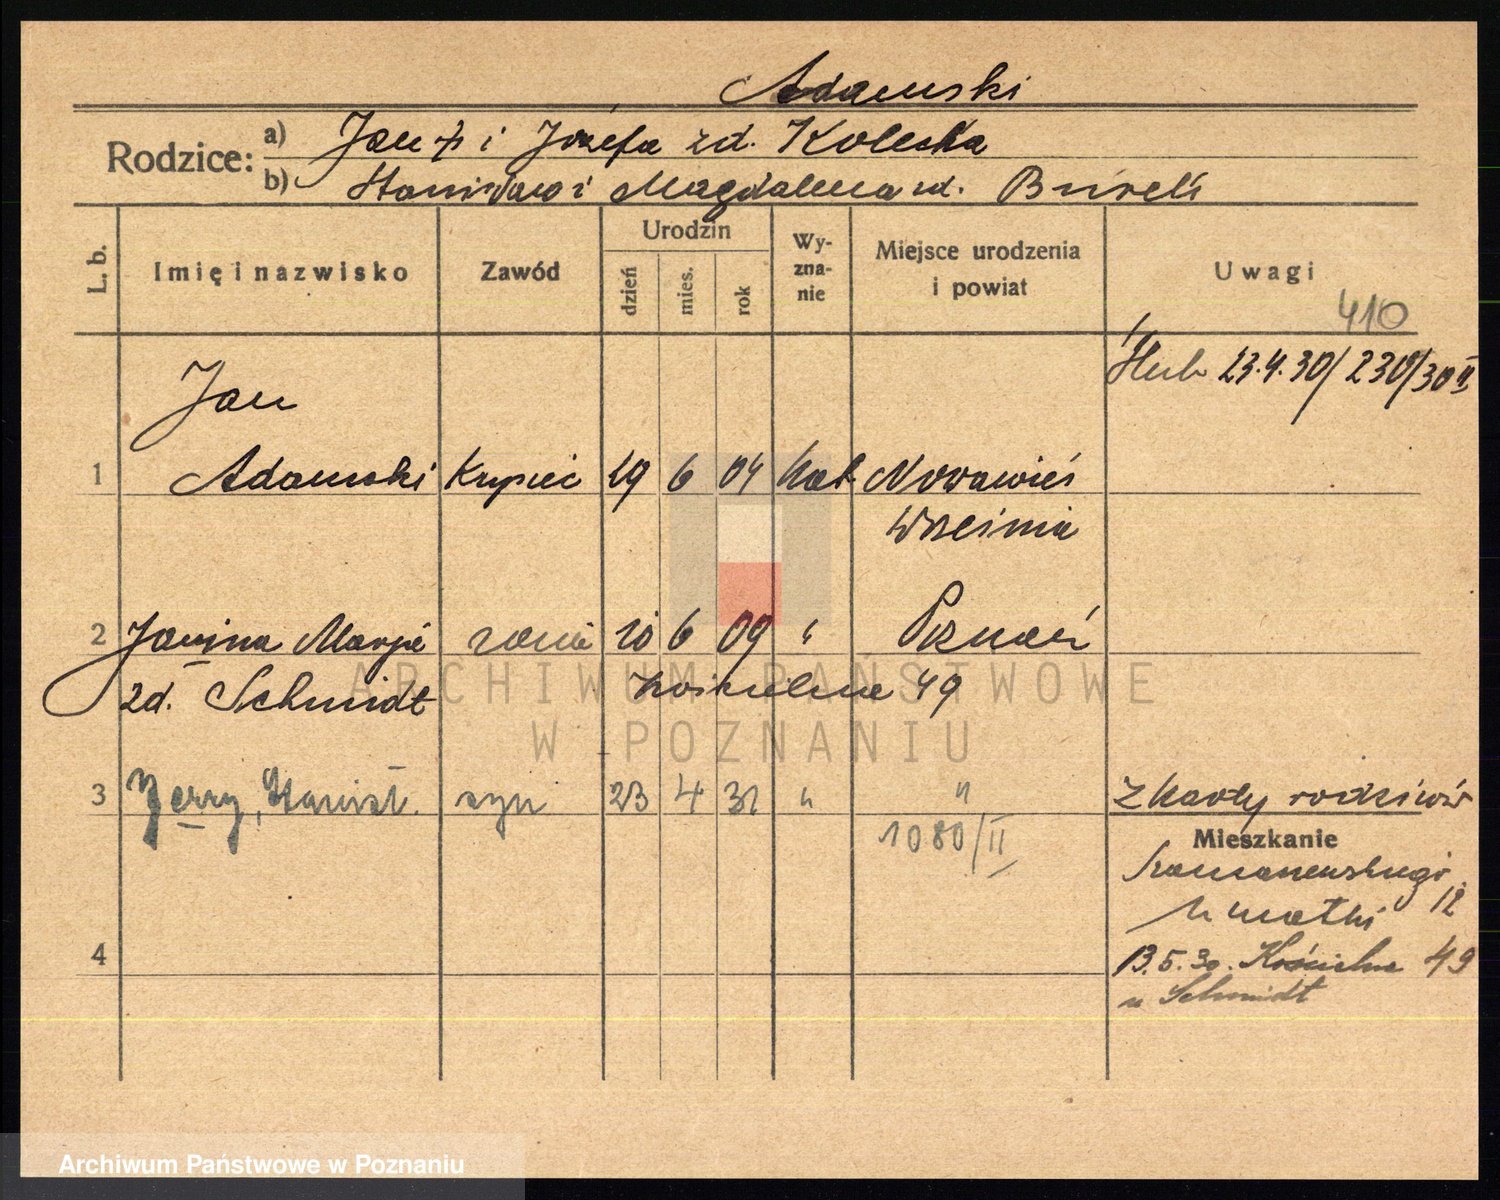 Adamski
Rodzice:
a) Jan i Józefa zd. Kolecka
b) Stanisław i Magdalena zd.
L. b.
Imię i nazwisko
Zawód
Urodzin
dzień
mies.
rok
Wy-
zna-
nie
Miejsce urodzenia
i powiat
Uwagi
410
23.4.30/230/30 II
Jan
1 Adamski Kupiec 19 6 04 kat. Nowawieś
Września
2 Janina Marja żona 10 6 09 " Poznań
zd. Schmidt Kościelna 49
3 Jerzy, Stanisł. syn 23 4 31 " " Z karty rodziców
1080/II
Mieszkanie
12
u matki
4
13.5.30. Kościelna 49
u Schmidt
ARCHIWUM PAŃSTWOWE
W POZNANIU
Archiwum Państwowe w Poznaniu